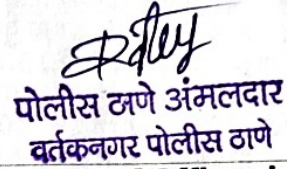 पोलीस ठाणे अंमलदार
वर्तकनगर पोलीस ठाणे